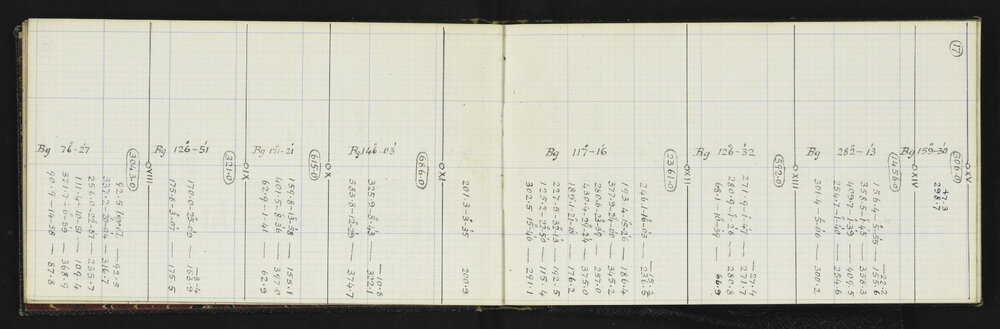 17
XV
306·0
47·3
298·7
Bg 159°-30'
XIV
1456·0
—22·2
156·4—5°-55'—155·6
358·5—1°-45'—358·3
409·7—1°-39'—409·5
254·7—1°-40'—254·6
301·4—5°-06'—300·2
Bg 282°-13'
XIII
592·0
—27·4
271·9—1°-47'—271·7
280·9—1°-26'—280·8
68·1—10°-39'—66·9
Bg 126°-32'
XII
2361·0
—15·2
246·1—16°-03'—236·5
193·4—15°-26'—186·4
377·9—24°-00'—345·2
280·6—23°-39'—257·0
430·4—29°-24'—375·0
189·1—21°-18'—176·2
227·5—32°-13'—192·5
125·2—22°-50'—115·4
302·5 15°-46'—291·1
Bg 117°-16'
201·3—3°-35' 200·9
XI
686·0
—10·8
325·9—8°-43'—322·1
383·8—12°-29'—374·7
Bg 146°-03'
X
615·0
159·8—13°-58'—155·1
407·5—8°-36'—397·0
62·9—1°-41'—62·9
Bg 171°-21'
IX
321·0
—8·4
170·0—25°-09'—153·9
175·8—3°-07'—175·5
Bg 126°-51'
VIII
3043·0
92·5 level—92·5
337·2—20°-04'—316·7
256·0—22°-57'—235·7
111·4—10°-51'—109·4
371·7—6°-59'—368·9
90·9—14°-58'—87·8
Bg 76°-27'